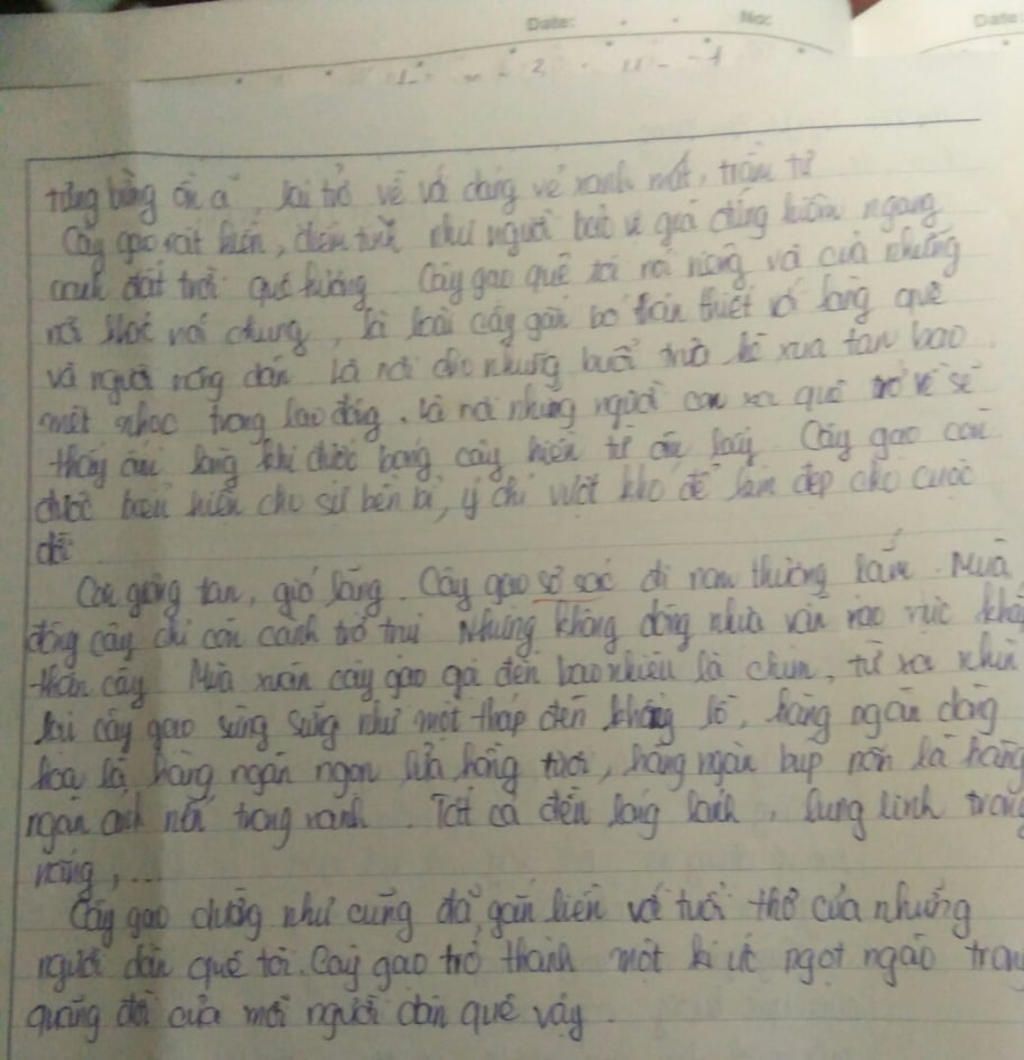 Date: No: Date:
tưng bừng ồn ã, lại trở về với dáng vẻ xanh mát, trầm tư
Cây gạo rất hiền, như người bảo vệ già đứng ngang
canh đất trời quê hương Cây gạo quê tôi nói riêng và của những
nơi khác nói chung, là loài cây gắn bó thân thiết với làng quê
và người nông dân là nơi cho những buổi trưa hè xua tan bao
mệt nhọc trong lao động. là nơi những người con xa quê trở về sẽ
thấy ấm lòng khi bóng cây hiền từ ấy Cây gạo còn
được biểu hiện cho sự bền bỉ, ý chí vượt khó để làm đẹp cho cuộc
đời
Cơn giông tan, gió lặng. Cây gạo sơ sác đi hơn thường lắm. Mùa
đông cây chỉ còn cành trơ trụi Nhưng không dòng nhựa vẫn rạo rực khắp
thân cây Mùa xuân cây gạo gọi đến bao nhiêu là chim, từ xa nhìn
lại cây gạo sừng sững như một tháp đèn khổng lồ, hàng ngàn bông
hoa là hàng ngàn ngọn lửa hồng tươi, hàng ngàn búp nõn là hàng
ngàn ánh nến trong xanh. Tất cả đều lóng lánh, lung linh trong
nắng, ...
Cây gạo dường như cũng đã gắn liền với tuổi thơ của những
người dân quê tôi. Cây gạo trở thành một kí ức ngọt ngào trong
quãng đời của mỗi người dân quê vậy.